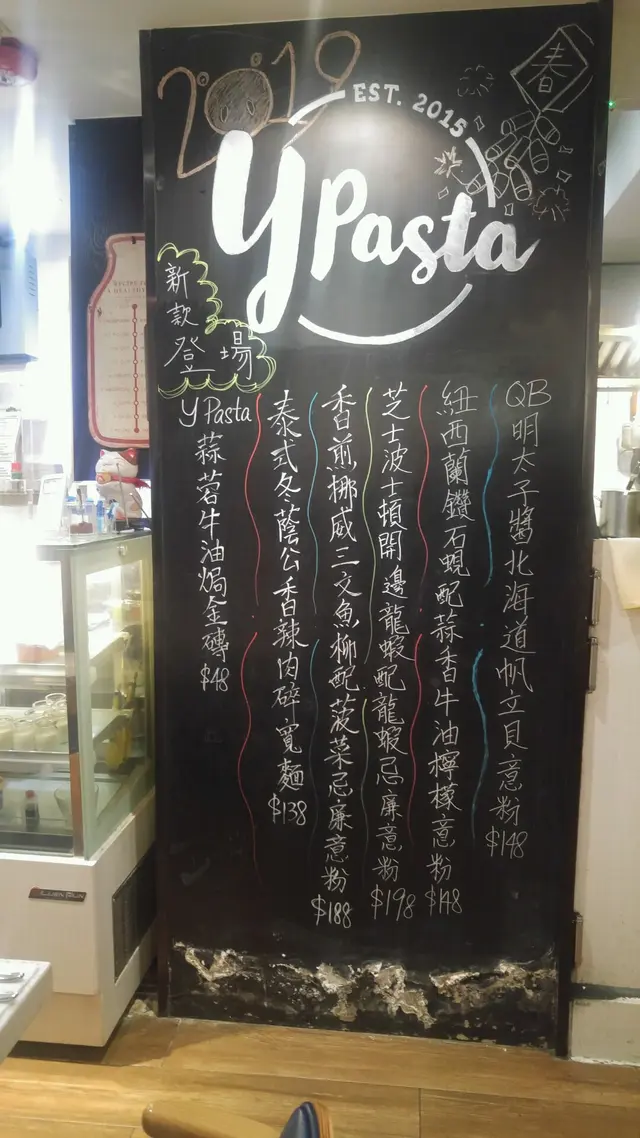 2019
春
EST. 2015
y Pasta
新款
登場
QB明太子醬北海道帆立貝意粉$148
紐西蘭鑽石蜆配蒜香牛油檸檬意粉$148
芝士波士頓開邊龍蝦配龍蝦忌廉意粉$198
香煎挪威三文魚柳配菠菜忌廉意粉$188
泰式冬蔭公香辣肉碎寬麵$138
y Pasta
蒜茗牛油焗金磚$48